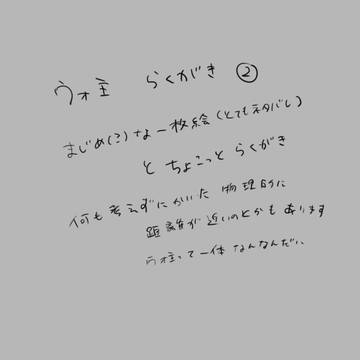 ウォ主 らくがき ②
まじめ(?)な一枚絵(とてもネタバレ)
とちょこっとらくがき
何も考えずにかいた 物理的に
距離が近いのとかもあります
ウォ主って一体なんなんだい